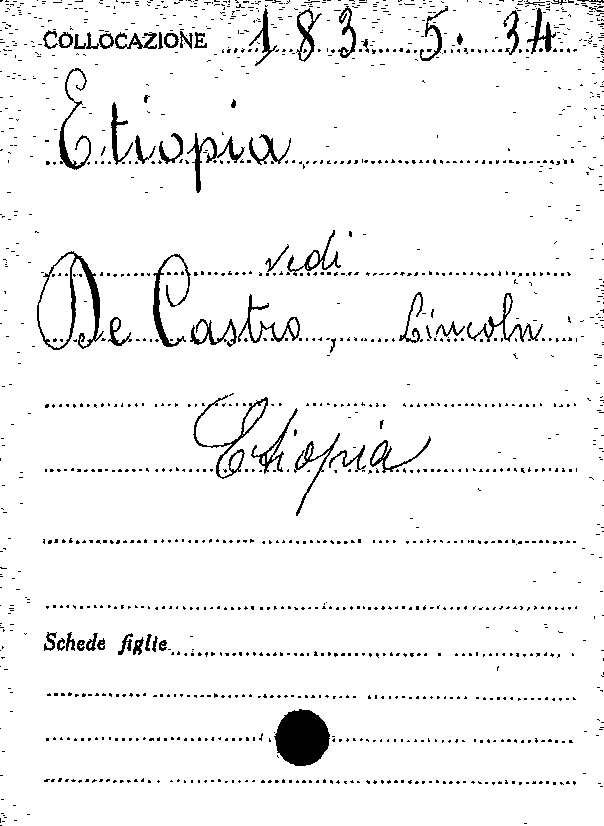 COLLOCAZIONE 183. 5. 34
Etiopia
vedi
De Castro, Lincoln
Etiopia
Schede figlie